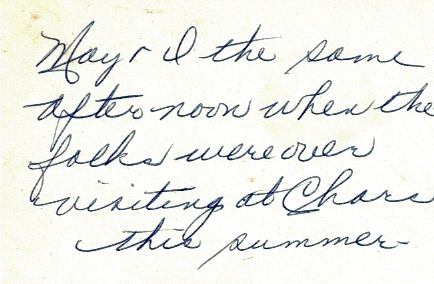 May & I the same
afternoon when the
folks were over
visiting at Chars
this summer